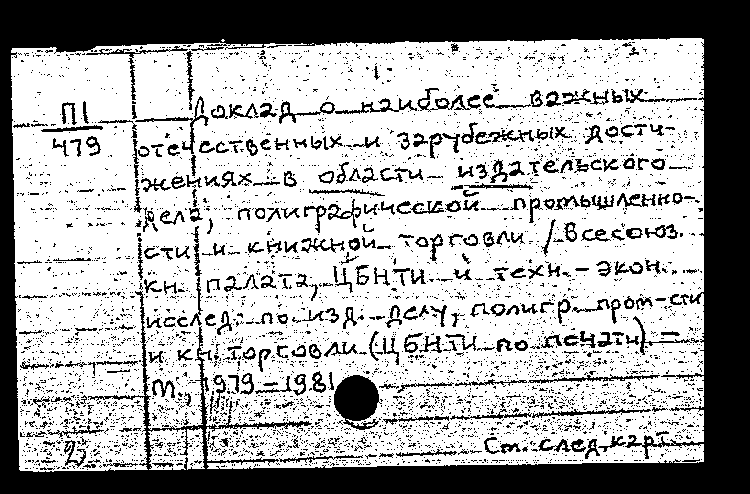 П1
479
Доклад о наиболее важных
отечественных и зарубежных дости-
жениях в области издательского
дела, полиграфической промышленно-
сти и книжной торговли / Всесоюз.
кн. палата, ЦБНТИ и техн.-экон.
исслед. по изд. делу, полигр. пром-сти
и кн. торговли (ЦБНТИ по печати). –
М., 1979-1981
См. след. карт.